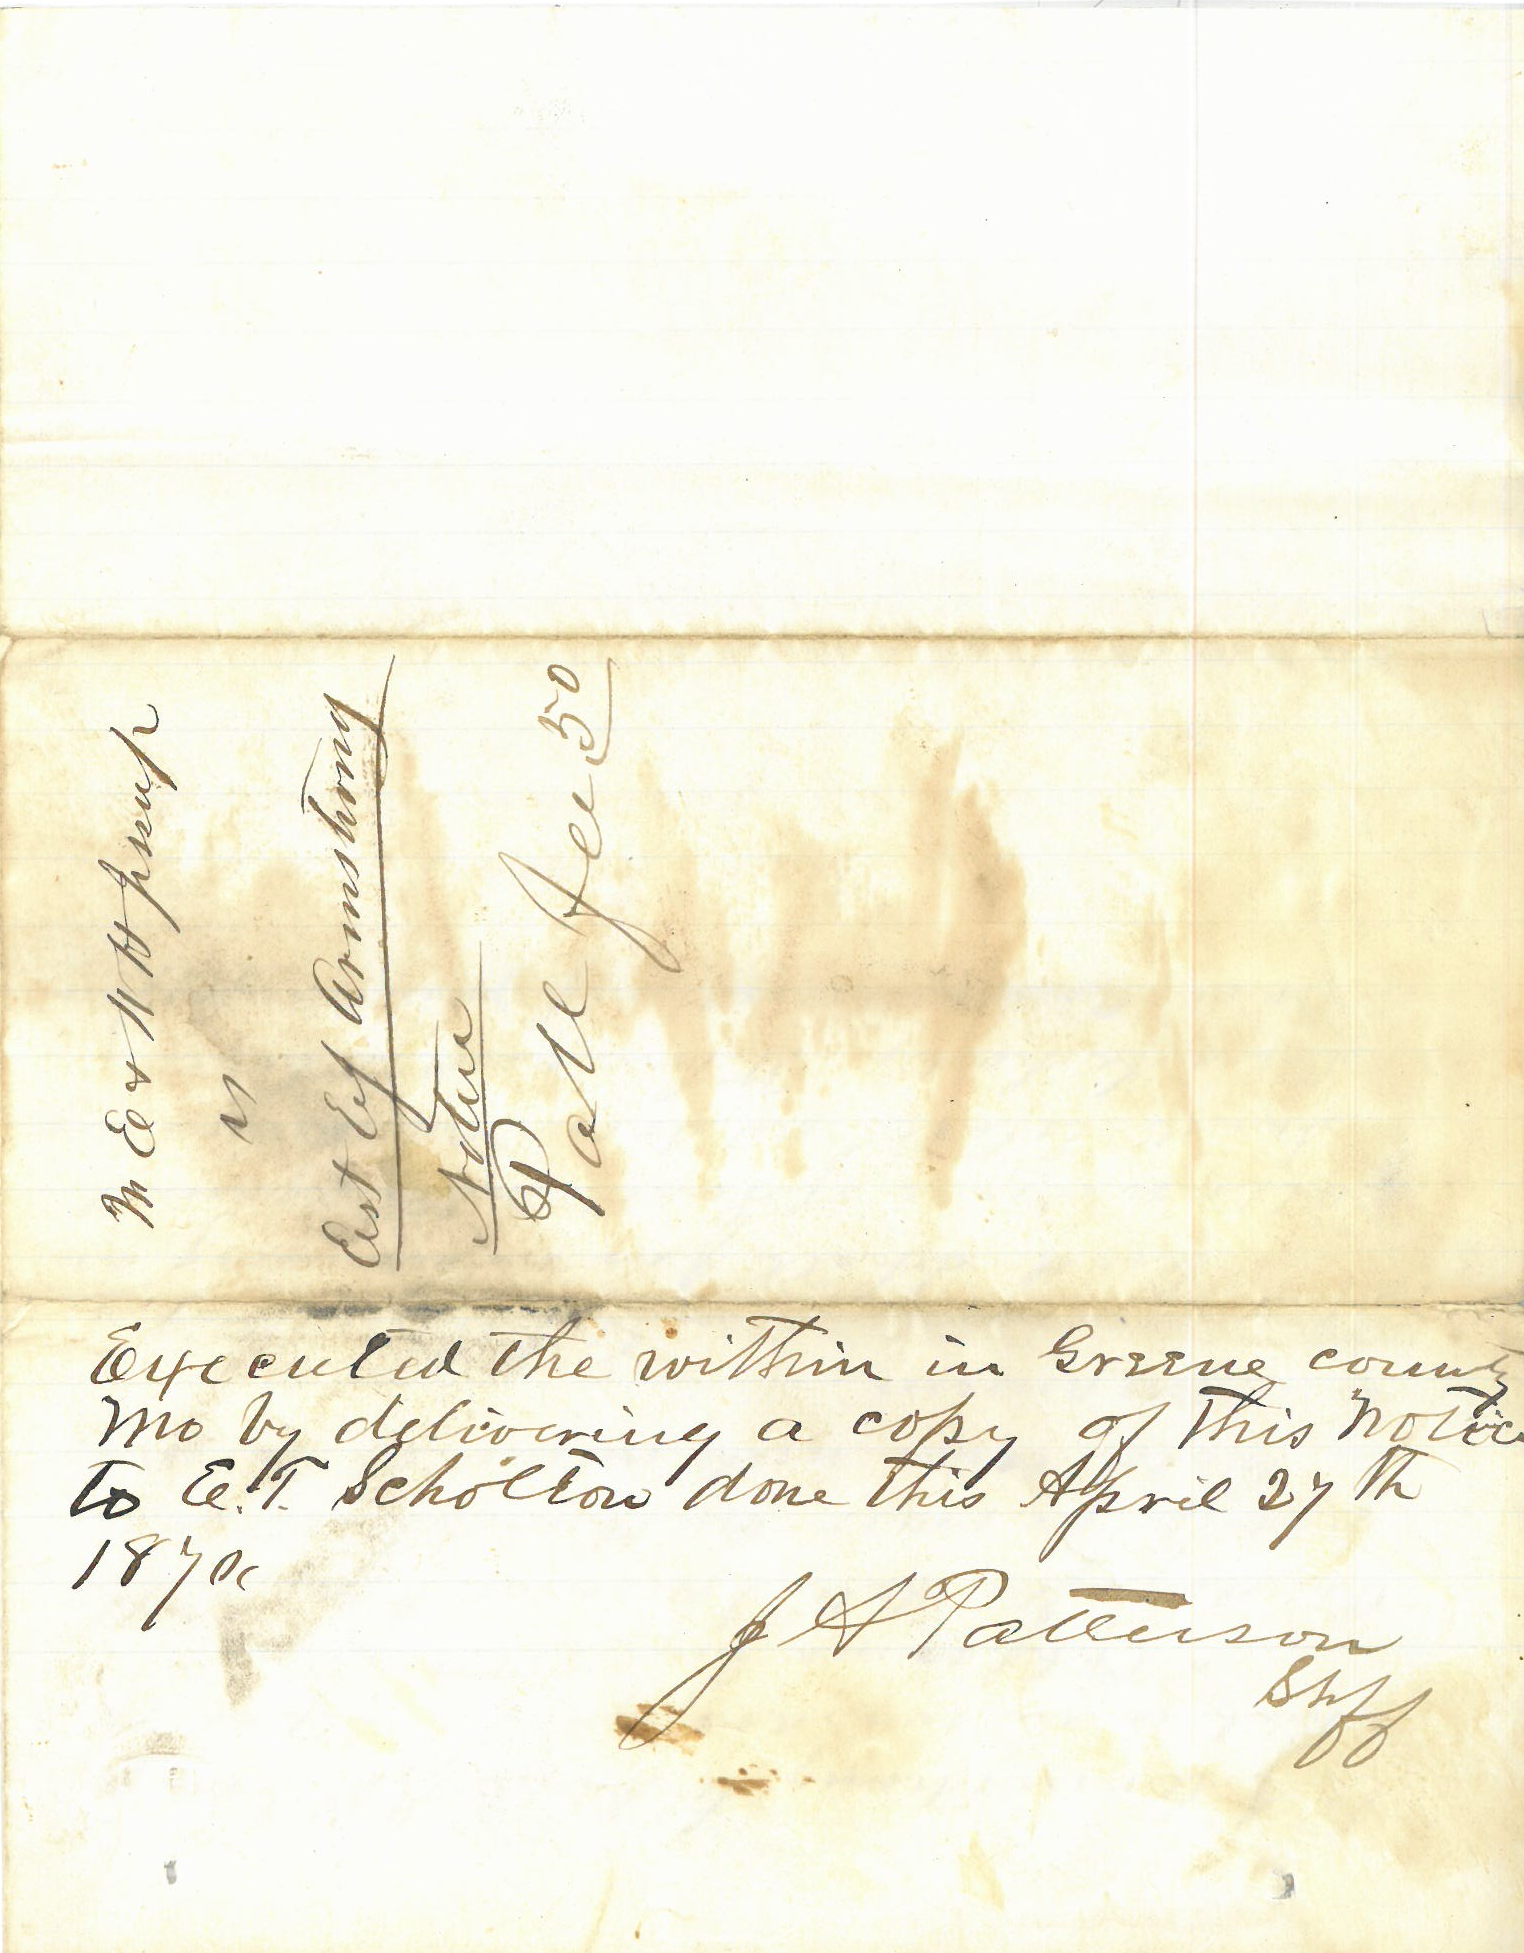 M E & W H Jessup
vs
Est of Armstrong
Notice
Patt Fee 50
Executed the within in Greene county
Mo by delivering a copy of this Notice
to E. T. Scholton done this April 27th
1870
J A Patterson
Shff